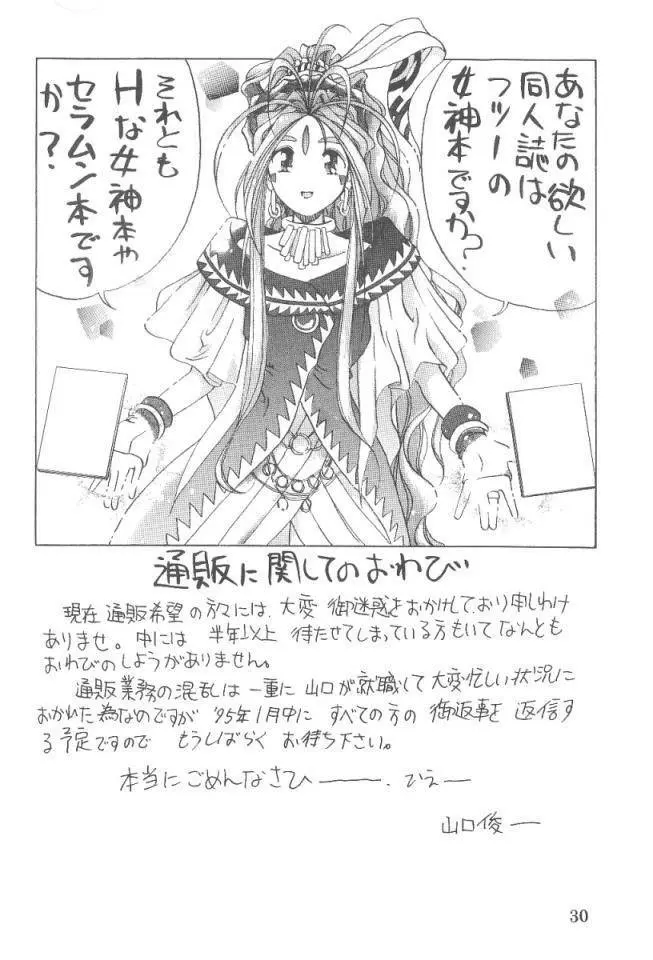 あなたの欲しい
同人誌は
フツーの
女神本ですか?
それとも
Hな女神本や
セラムン本です
か?
通販に関してのおわび
現在通販希望の方々には、大変 御迷惑をおかけしており申しわけ
ありませ。中には 半年以上 待たせてしまっている方もいてなんとも
おわびのしようがありません。
通販業務の混乱は一重に山口が就職して大変忙しい状況に
おかれた為なのですが '95年1月中に すべての方の 御返事を 返信す
る予定ですので もうしばらく お待ち下さい。
本当にごめんなさひ———. ひえー
山口俊一
30